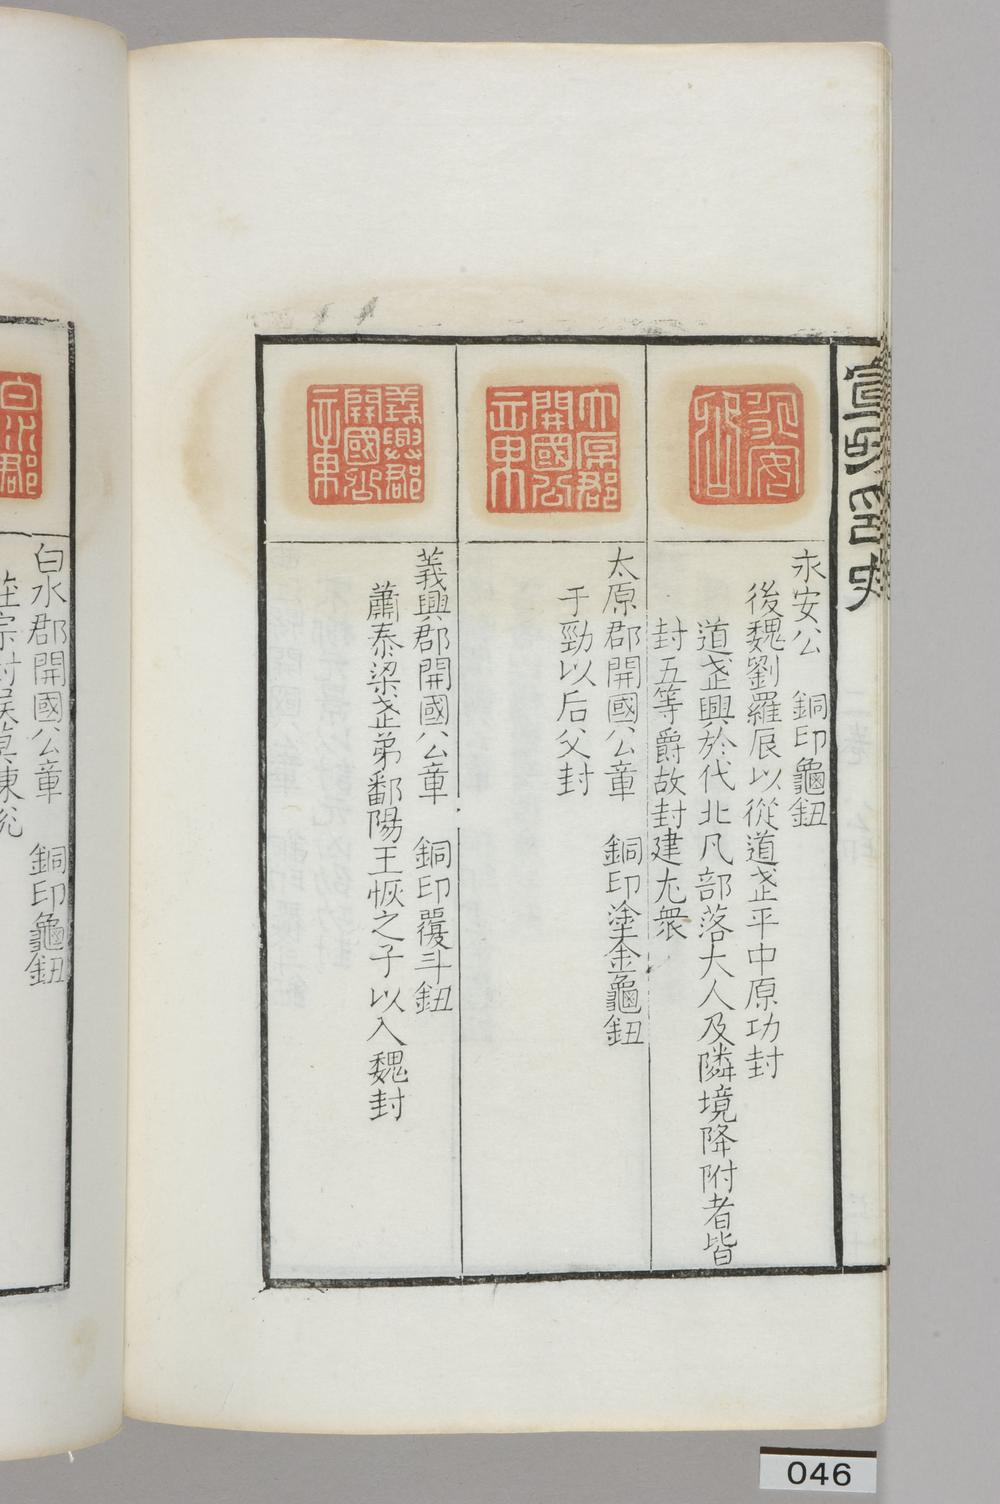 宣和印史
永安公 銅印龜鈕
後魏劉羅辰以從道武平中原功封
道武興於代北凡部落大人及隣境降附者皆
封五等爵故封建尢衆
太原郡開國公章 銅印塗金龜鈕
于勁以后父封
義興郡開國公章 銅印覆斗鈕
蕭泰梁武弟鄱陽王恢之子以入魏封
白水郡開國公章 銅印龜鈕
046